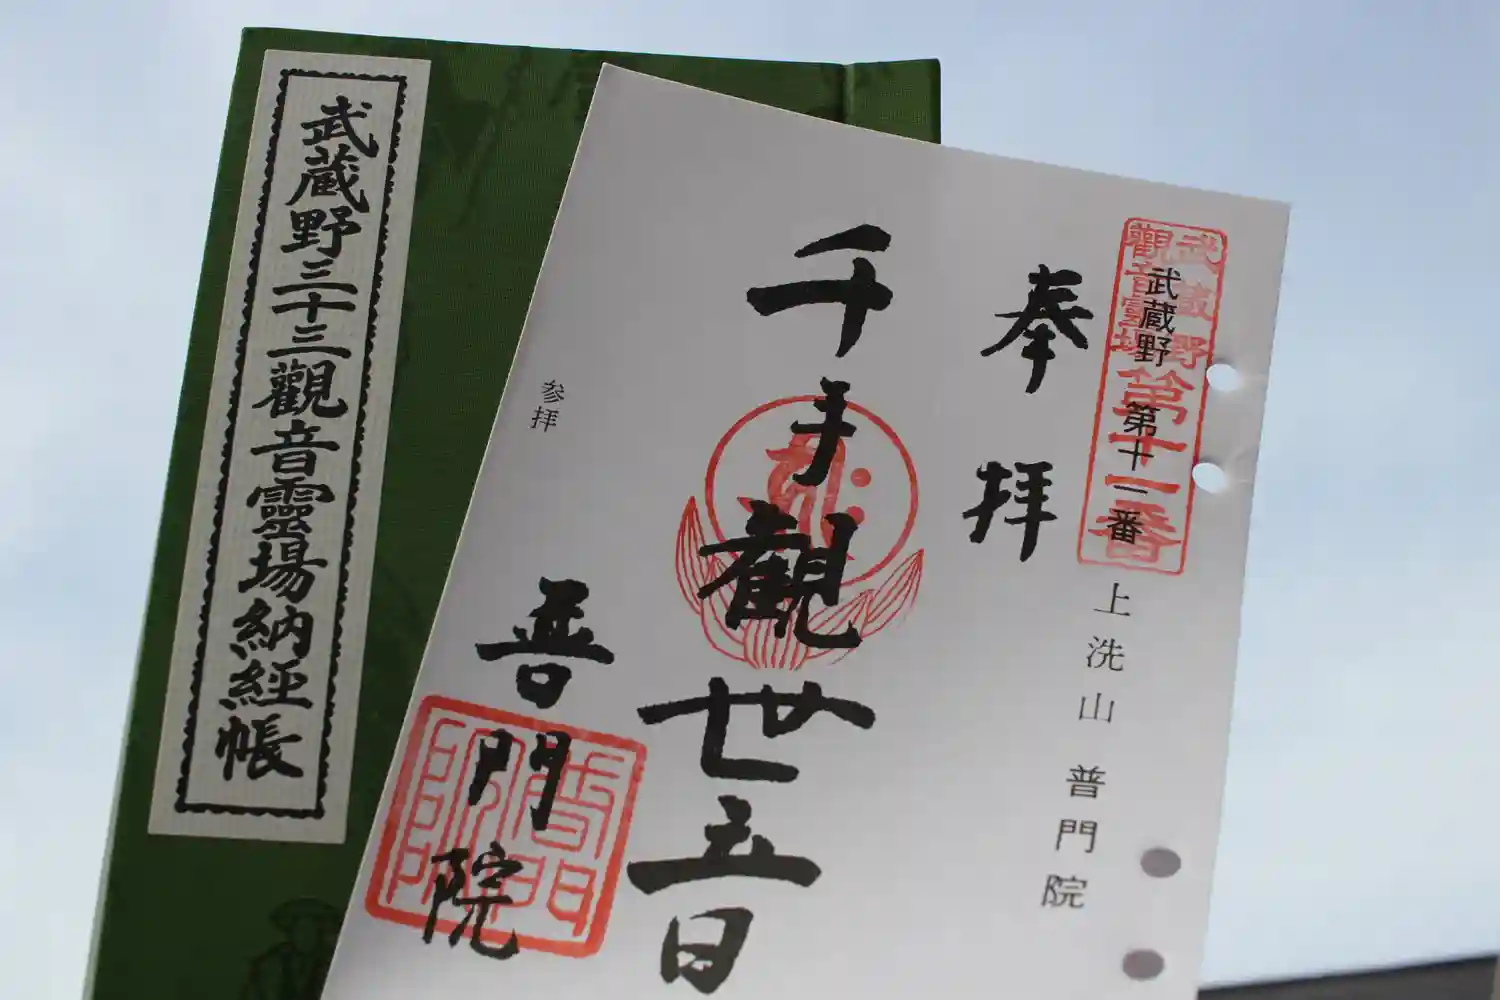 武蔵野三十三觀音靈場納経帳
武蔵野觀音靈場第十一番
武蔵野 第十一番
上洗山 普門院
奉拝
千手觀世音
普門院
参拝
普門院